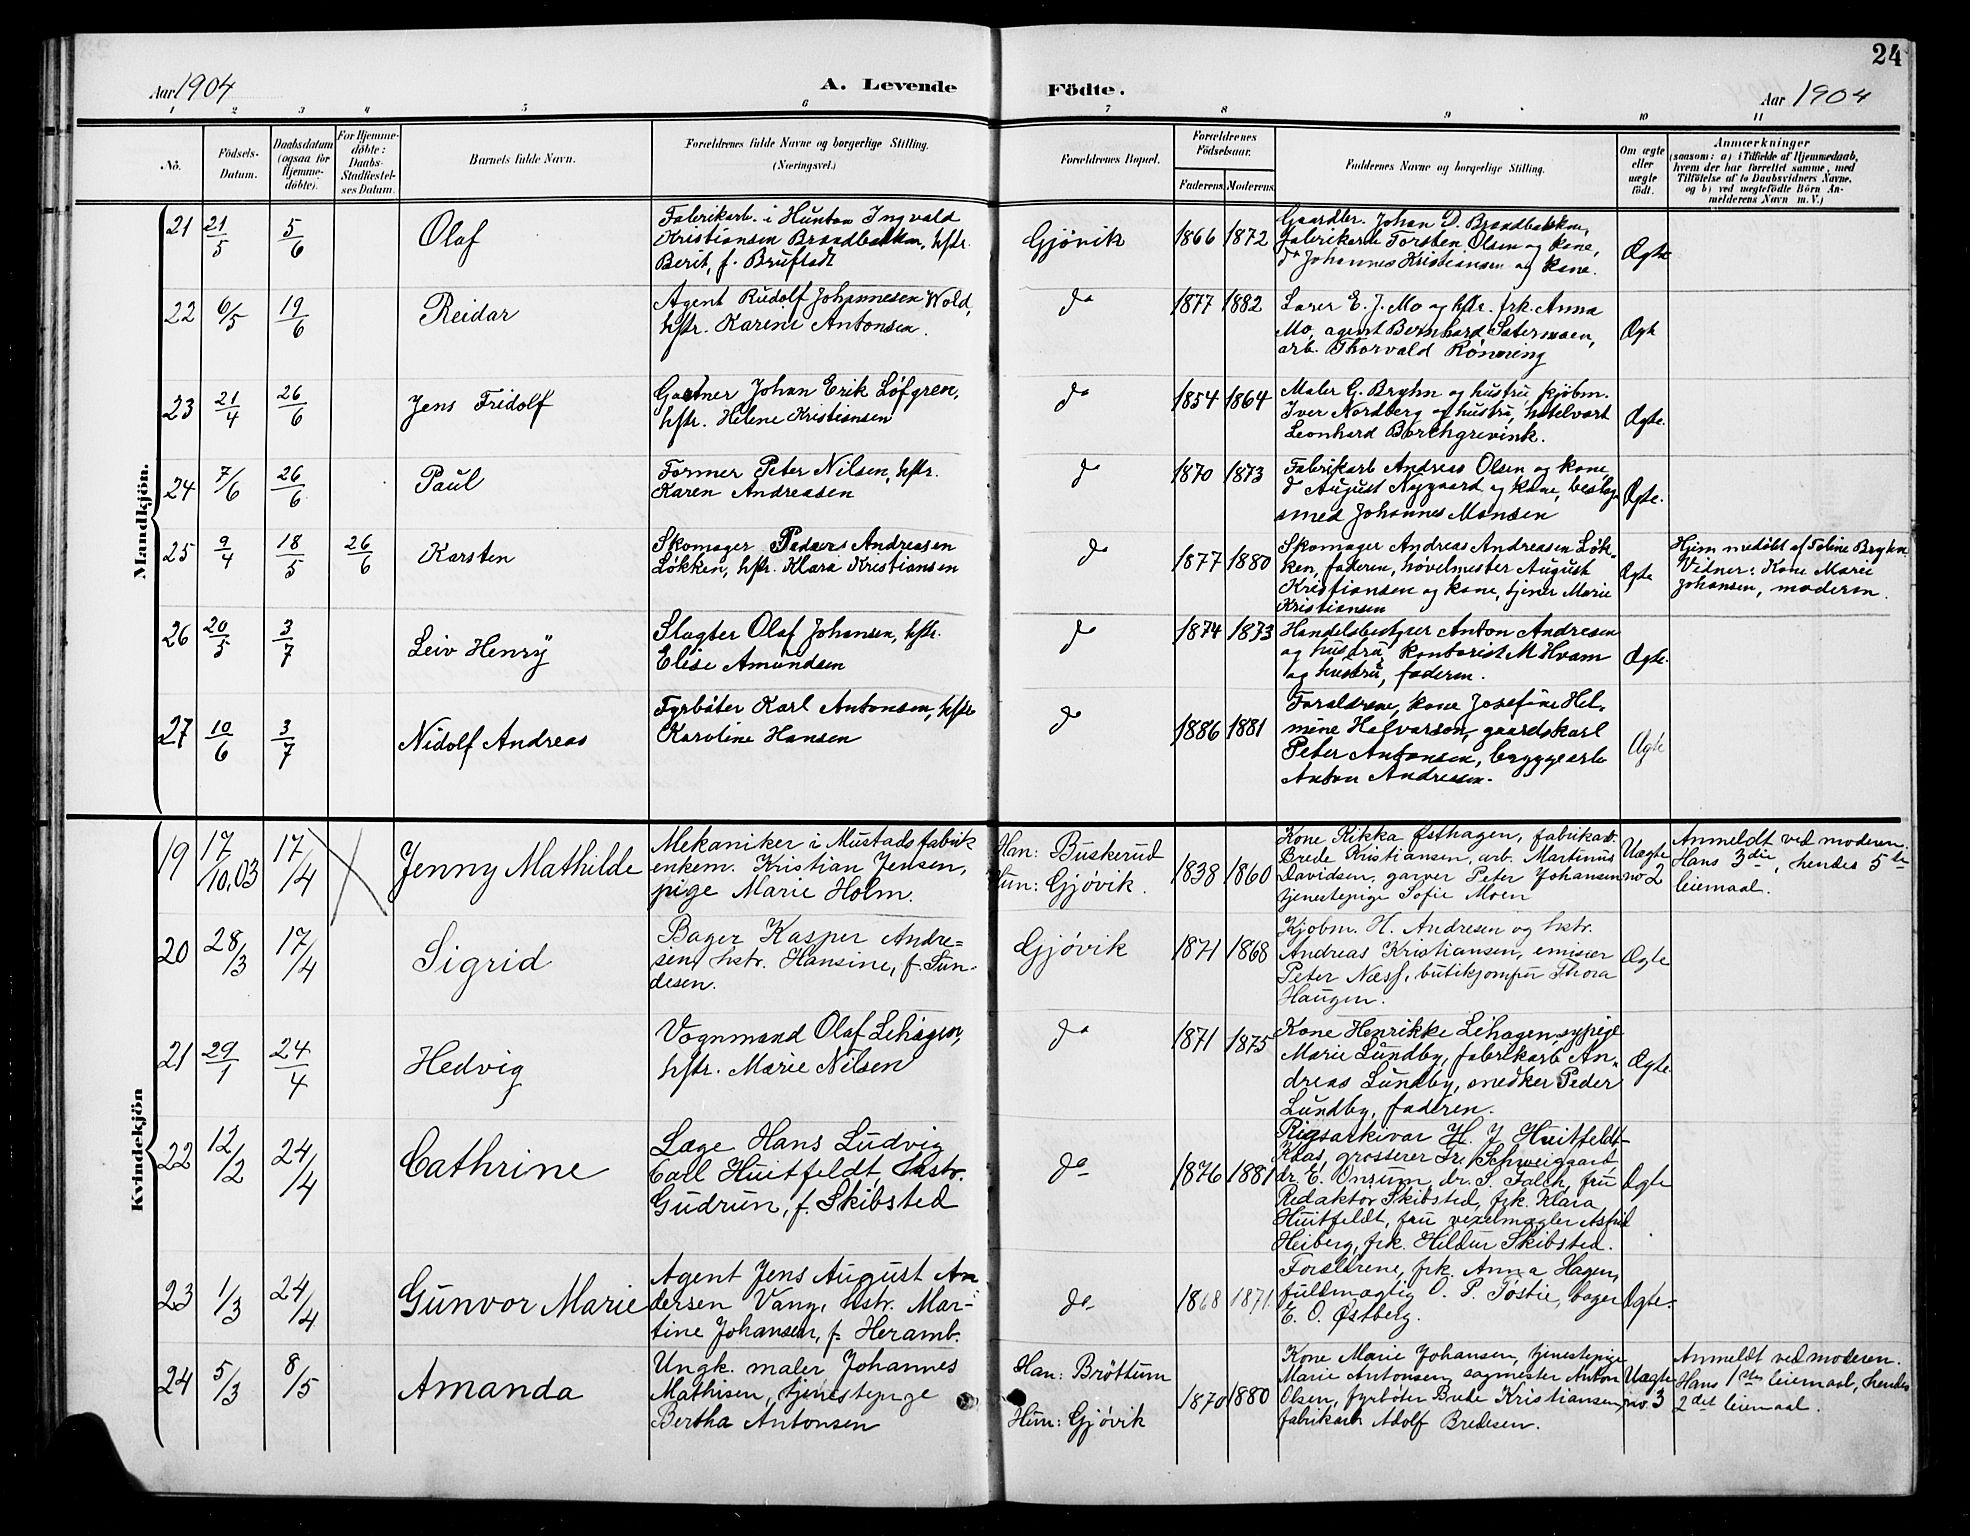 24
Aar 1904
A. Levende
Födte.
Aar 1904
1 2 3 4 5 6 7 8 9 10 11
No.
Födsels-
Datum.
Daabsdatum
(ogsaa for
Hjemme-
döbte).
For Hjemme-
döbte:
Daabs-
Stadfæstel-
ses Datum.
Barnets fulde Navn.
Forældrenes fulde Navne og borgerlige Stilling.
(Næringsvei.)
Forældrenes Bopæl.
Forældrenes
Födselsaar.
Faderens
Moderens
Faddernes Navne og borgerlige Stilling.
Om ægte
eller
uægte
födt.
Anmærkninger
(saasom: a) i Tilfælde af Hjemmedaab,
hvem der har forrettet samme, med
Tilföielse af to Daabsvidners Navne,
og b) ved uægtefödte Börn An-
melderens Navn m. V.)
Mandkjön.
21
21/5
5/6
Olaf
Fabrikarb. i Hunton Ingvald
Kristiansen Brandbakken, hstr.
Berit, f. Brufladt
Gjøvik
1866
1872
Gaardbr. Johan D. Brandbakken,
fabrikarb Torsten Olsen og kone,
do Johannes Kristiansen og kone.
Ægte
22
6/5
19/6
Reidar
Agent Rudolf Johannesen Wold,
hstr. Karine Antonsen.
do
1877
1882
Lærer E. J. Mo og hstr. frk. Anna
Mo, agent Bernhard Sætermoen,
arb. Thorvald Rönning
Ægte
23
21/4
26/6
Jens Fridolf
Gartner Johan Erik Løfgren,
hstr. Helene Kristiansen
do
1854
1864
Maler G. Bryhn og hustru, kjöbm.
Iver Nordberg og hustru, hotelvært
Leonhard Borchgrevink.
Ægte.
24
7/6
26/6
Paul
Former Peter Nilsen, hstr.
Karen Andreasen
do
1870
1873
Fabrikarb Andreas Olsen og kone,
do August Nygaard og kone, beslag-
smed Johannes Monsen
Ægte.
25
9/4
18/5
26/6
Karsten
Skomager Peder Andreasen
Løkken, hstr. Klara Kristiansen
do
1877
1880
Skomager Andreas Andreasen Løk-
ken, faderen, hövelmester August
Kristiansen og kone, tjener Marie
Kristiansen
Ægte
Hjemmedöbt af Toline Bryhn.
Vidner: Kone Marie
Johansen, moderen.
26
20/5
3/7
Leiv Henry
Slagter Olaf Johansen, hstr.
Elise Amundsen
do
1874
1873
Handelsbestyrer Anton Andresen
og hustru, kontorist M Hvam
og hustru, faderen.
Ægte.
27
10/6
3/7
Nidolf Andreas
Fyrböter Karl Antonsen, hstr
Karoline Hansen
do
1886
1881
Forældrene, kone Josefine Hel-
mine Halvorsen, gaardskarl
Peter Antonsen, bryggearb
Anton Andresen.
Ægte
Kvindekjön
19
17/10.03
17/4
Jenny Mathilde
Mekaniker i Mustads fabrik
enkem. Kristian Jensen,
pige Marie Holm.
Han: Buskerud
Hun: Gjøvik.
1838
1860
Kone Rikka Østhagen, fabrikarb.
Brede Kristiansen, arb. Martinus
Davidsen, garver Peter Johansen
tjenestepige Sofie Moen
Uægte
no 2
Anmeldt ved moderen.
Hans 3die, hendes 5te
leiemaal.
20
28/3
17/4
Sigrid
Bager Kasper Andre=
sen, hstr. Hansine, f. Tun-
desen.
Gjøvik
1871
1868
Kjøbm. H. Andresen og hstr.
Andreas Kristiansen, emisær
Peter Næss, butikjomfru Thora
Haugen.
Ægte
21
29/1
24/4
Hedvig
Vognmand Olaf Lehagen,
hstr. Marie Nilsen
do
1871
1875
Kone Henrikke Lehagen, sypige
Marie Lundby, fabrikarb An-
dreas Lundby, snedker Peder
Lundby, faderen.
Ægte.
22
12/2
24/4
Cathrine
Læge Hans Ludvig
Carl Huitfeldt, hstr.
Gudrun, f. Skibsted
do
1876
1881
Rigsarkivar H. J. Huitfeldt-
Kaas, grosserer Fr. Schweigaard,
dr. E. Onsum, dr. S. Falch, fru
Redaktör Skibsted, frk. Klara
Huitfeldt, fru vexelmægler Astrid
Heiberg, frk. Hildur Skibsted.
Ægte
23
1/3
24/4
Gunvor Marie
Agent Jens August An
dersen Vang, hstr. Mar-
tine Johansen, f. Heramb.
do
1868
1871.
Forældrene, frk. Anna Hagen,
fuldmægtig O. P. Töstie, bager
E. O. Østberg.
Ægte.
24
5/3
8/5
Amanda
Ungk. maler Johannes
Mathisen, tjenestepige
Bertha Antonsen
Han: Bröttum
Hun: Gjøvik
1870
1880
Kone Marie Johansen, tjenestepige
Marie Antonsen, sagmester Anton
Olsen, fyrböter Brede Kristiansen,
fabrikarb Adolf Bredesen.
Uægte
no. 3
Anmeldt ved moderen.
Hans 1ste leiemaal, hendes
2det leiemaal.